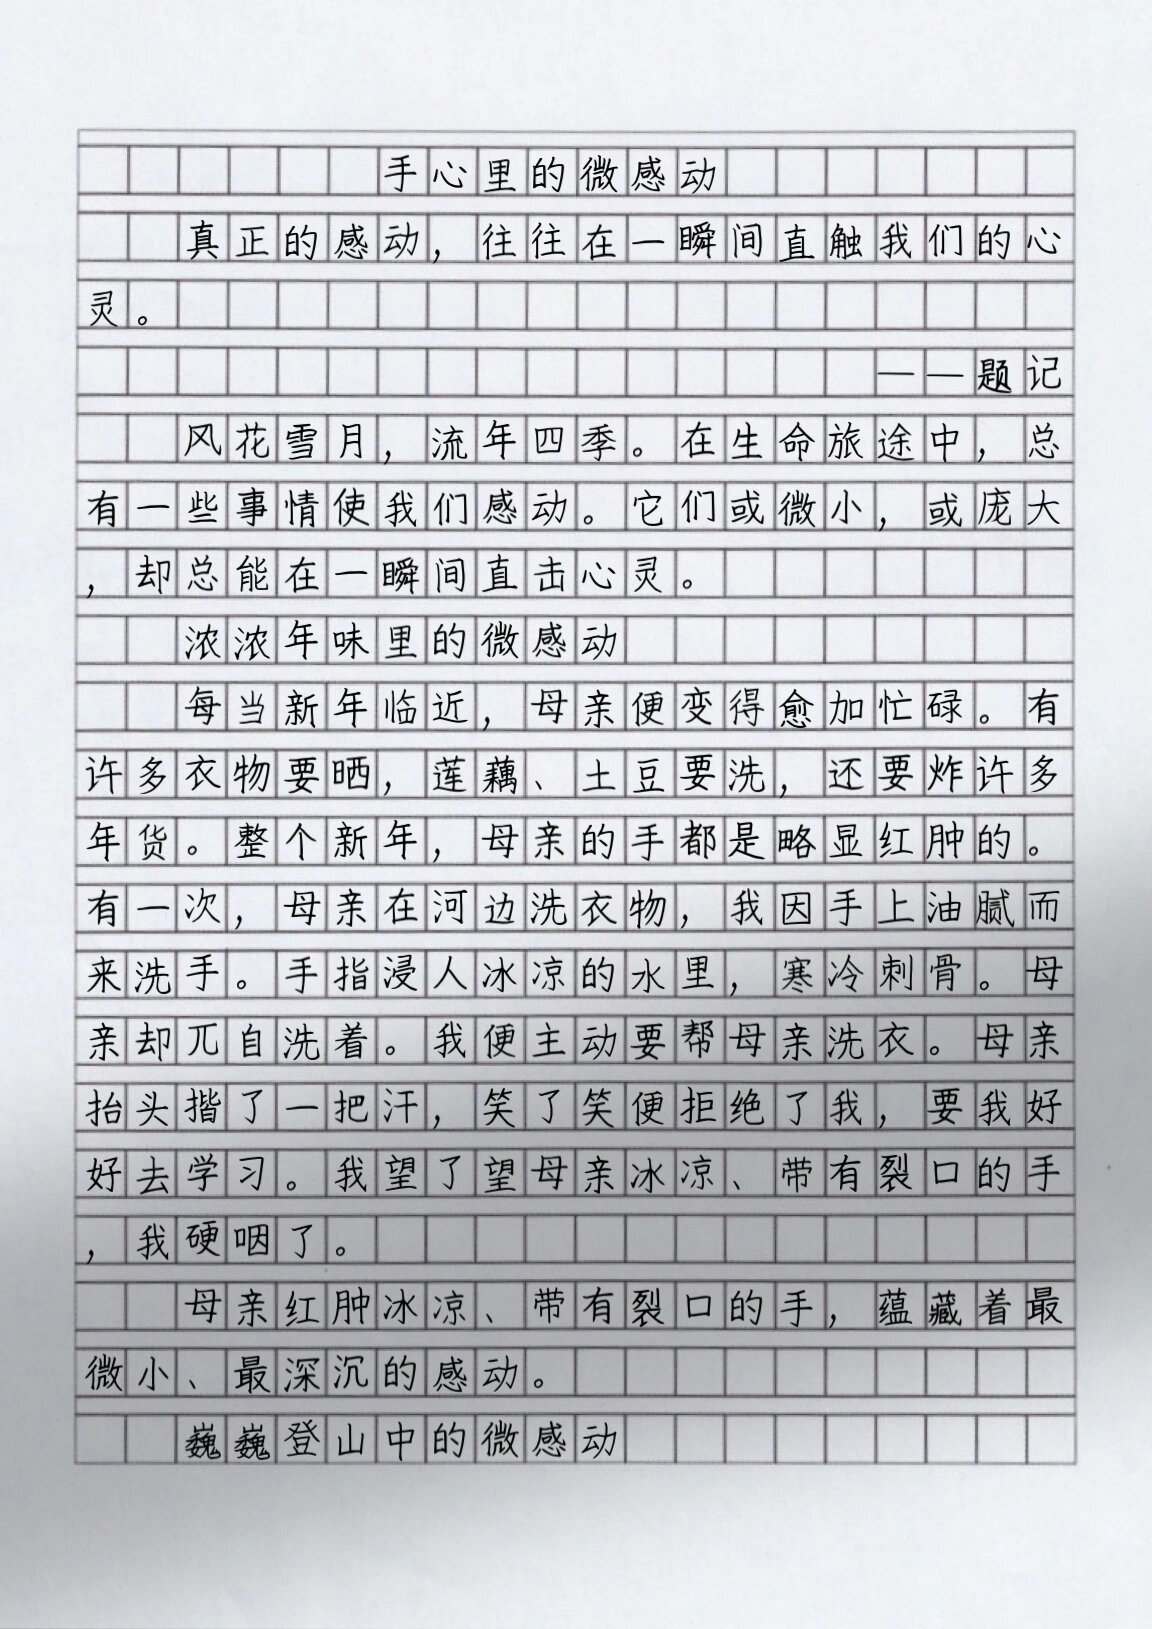 手心里的微感动
真正的感动，往往在一瞬间直触我们的心
灵。
——题记
风花雪月，流年四季。在生命旅途中，总
有一些事情使我们感动。它们或微小，或庞大
，却总能在一瞬间直击心灵。
浓浓年味里的微感动
每当新年临近，母亲便变得愈加忙碌。有
许多衣物要晒，莲藕、土豆要洗，还要炸许多
年货。整个新年，母亲的手都是略显红肿的。
有一次，母亲在河边洗衣物，我因手上油腻而
来洗手。手指浸人冰凉的水里，寒冷刺骨。母
亲却兀自洗着。我便主动要帮母亲洗衣。母亲
抬头揩了一把汗，笑了笑便拒绝了我，要我好
好去学习。我望了望母亲冰凉、带有裂口的手
，我硬咽了。
母亲红肿冰凉、带有裂口的手，蕴藏着最
微小、最深沉的感动。
巍巍登山中的微感动